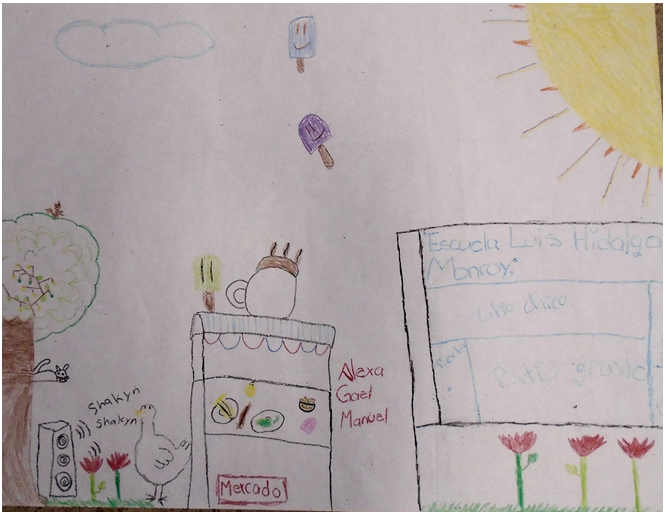 Escuela Luis Hidalgo
Monroy.
Patio chico
Patio grande
Alexa
Gael
Manuel
shakyn
shakyn
Mercado